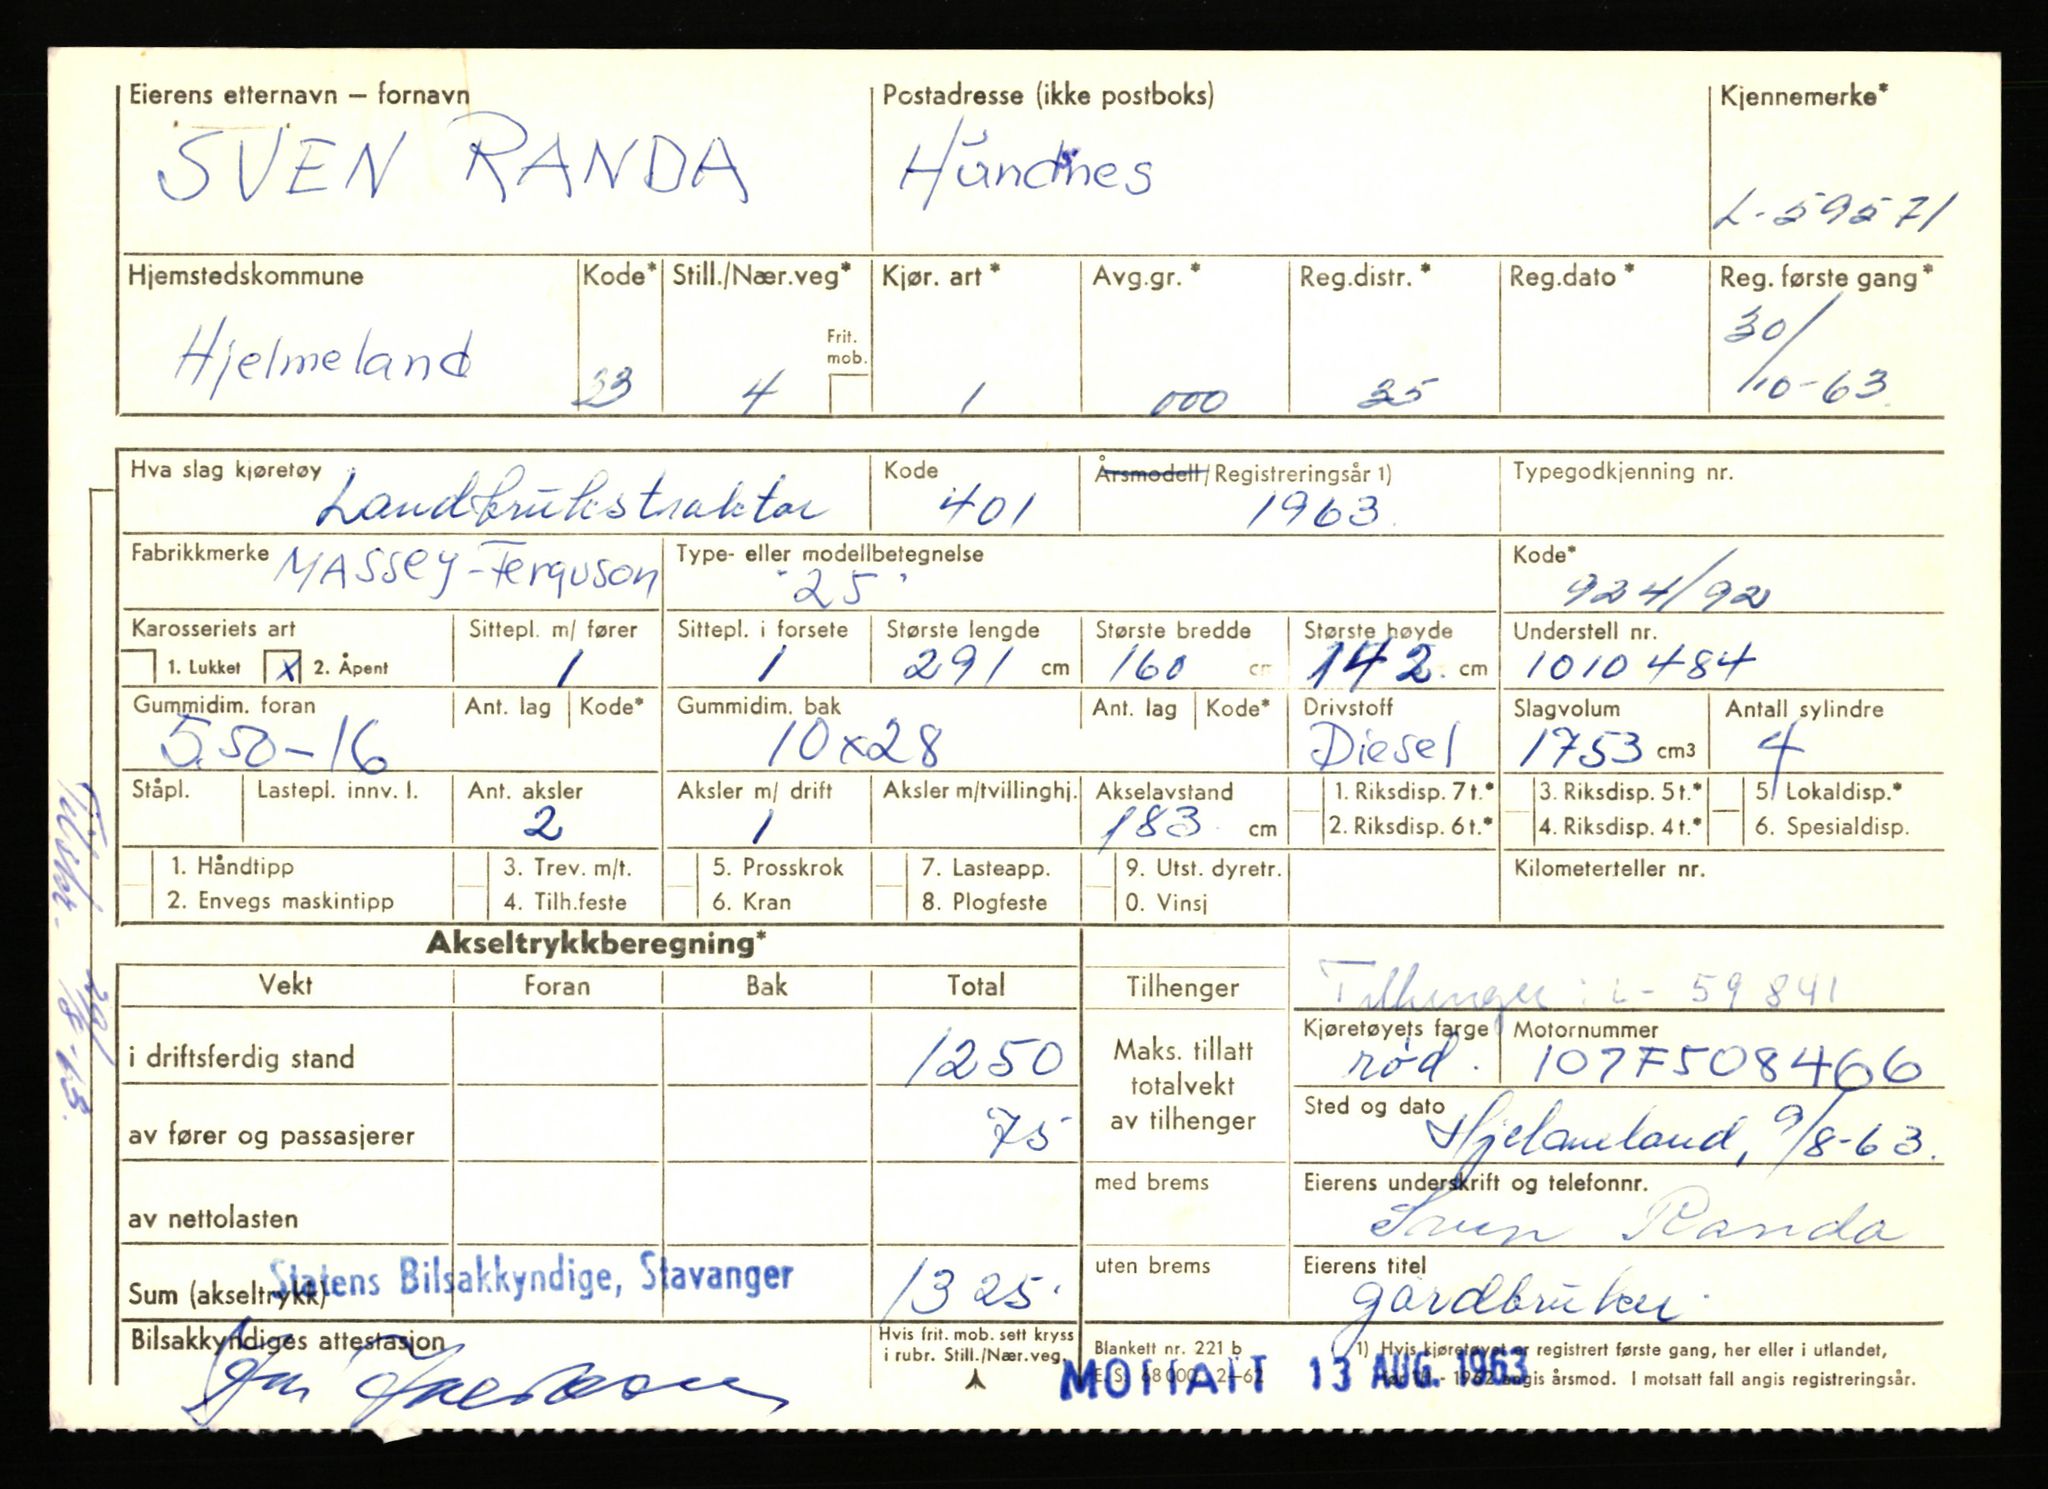 Eierens etternavn — fornavn Postadresse (ikke postboks) Kjennemerke*
SVEN RANDA Hundsnes L-59571
Hjemstedskommune Kode* Still./Nær.veg* Kjør. art* Avg.gr.* Reg.distr.* Reg.dato* Reg. første gang*
Frit. mob.
Hjelmeland 33 4 1 000 35 30/10-63
Hva slag kjøretøy Kode Årsmodell/Registreringsår 1) Typegodkjenning nr.
Landbrukstraktor 401 1963
Fabrikkmerke Type- eller modellbetegnelse Kode*
MASSEY-Ferguson "25" 924/92
Karosseriets art Sittepl. m/ fører Sittepl. i forsete Største lengde Største bredde Største høyde Understell nr.
1. Lukket x 2. Åpent 1 1 291 cm 160 cm 142 cm 1010484
Gummidim. foran Ant. lag Kode* Gummidim. bak Ant. lag Kode* Drivstoff Slagvolum Antall sylindre
5.50-16 10x28 Diesel 1753 cm3 4
Ståpl. Lastepl. innv. l. Ant. aksler Aksler m/ drift Aksler m/tvillinghj. Akselavstand 1. Riksdisp. 7 t.* 3. Riksdisp. 5 t.* 5. Lokaldisp.*
2 1 183 cm 2. Riksdisp. 6 t.* 4. Riksdisp. 4 t.* 6. Spesialdisp.
1. Håndtipp 3. Trev. m/t. 5. Prosskrok 7. Lasteapp. 9. Utst. dyretr. Kilometerteller nr.
2. Envegs maskintipp 4. Tilh.feste 6. Kran 8. Plogfeste 0. Vinsj
Akseltrykkberegning*
Vekt Foran Bak Total Tilhenger Tilhenger: L- 59841
Kjøretøyets farge Motornummer
i driftsferdig stand 1250 Maks. tillatt totalvekt av tilhenger rød. 107F508466
Sted og dato
av fører og passasjerer 75 Hjelmeland, 9/8-63.
med brems Eierens underskrift og telefonnr.
av nettolasten Sven Randa
Statens Bilsakkyndige, Stavanger
uten brems Eierens titel
Sum (akseltrykk) 1325 gårdbruker
Bilsakkyndiges attestasjon Hvis frit. mob. sett kryss i rubr. Still./Nær.veg.
Blankett nr. 221 b 1) Hvis kjøretøyet er registrert første gang, her eller i utlandet,
E.S. 68 000. 2-62 før 1/1 - 1962 angis årsmod. I motsatt fall angis registreringsår.
MOTTATT 13 AUG. 1963